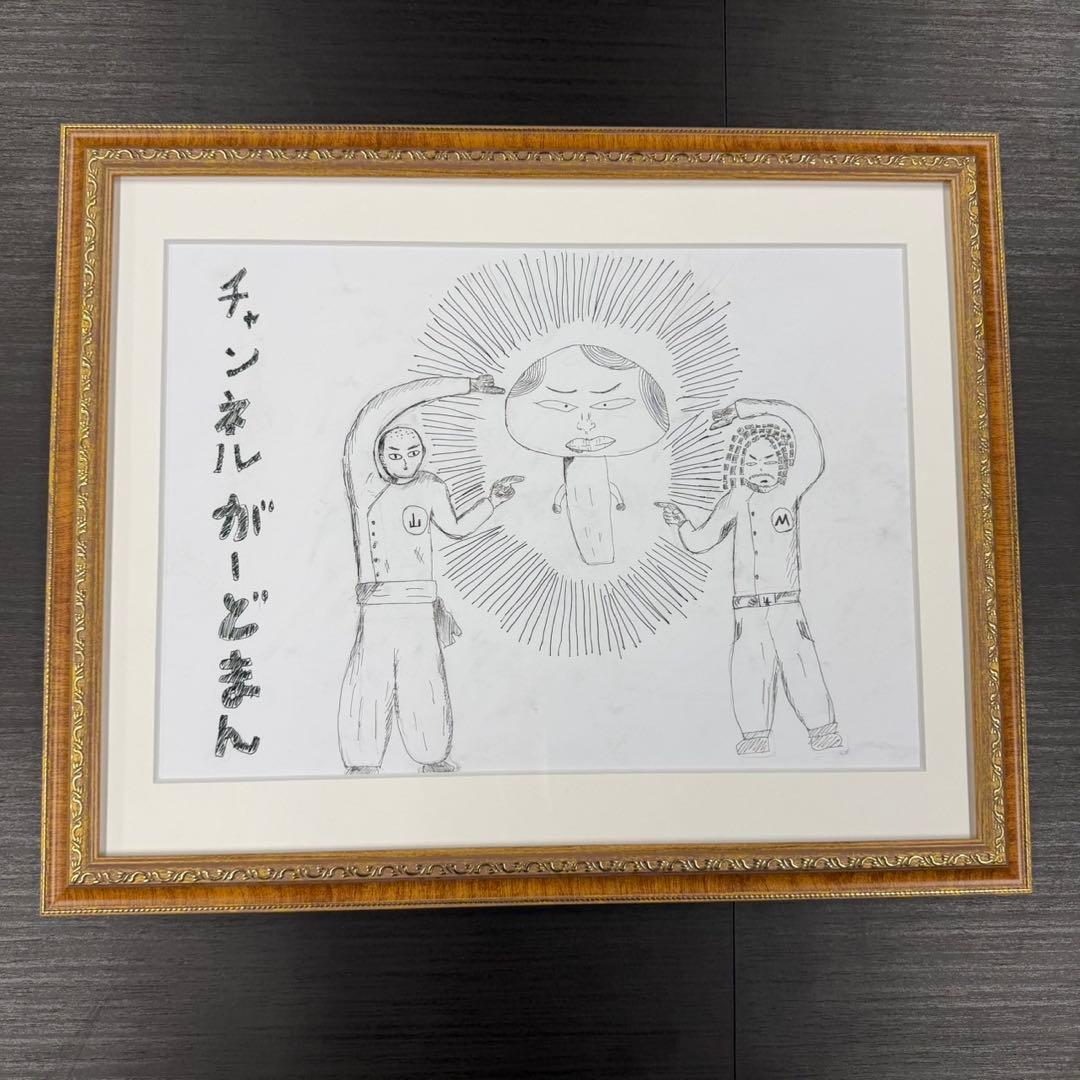 チャンネルがーどまん
山
M